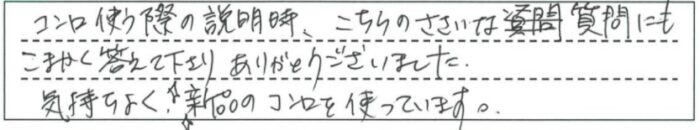 コンロ使う際の説明時、こちらのささいな質問にも
こまかく答えて下さりありがとうございました。
気持ちよく新品のコンロを使っています。